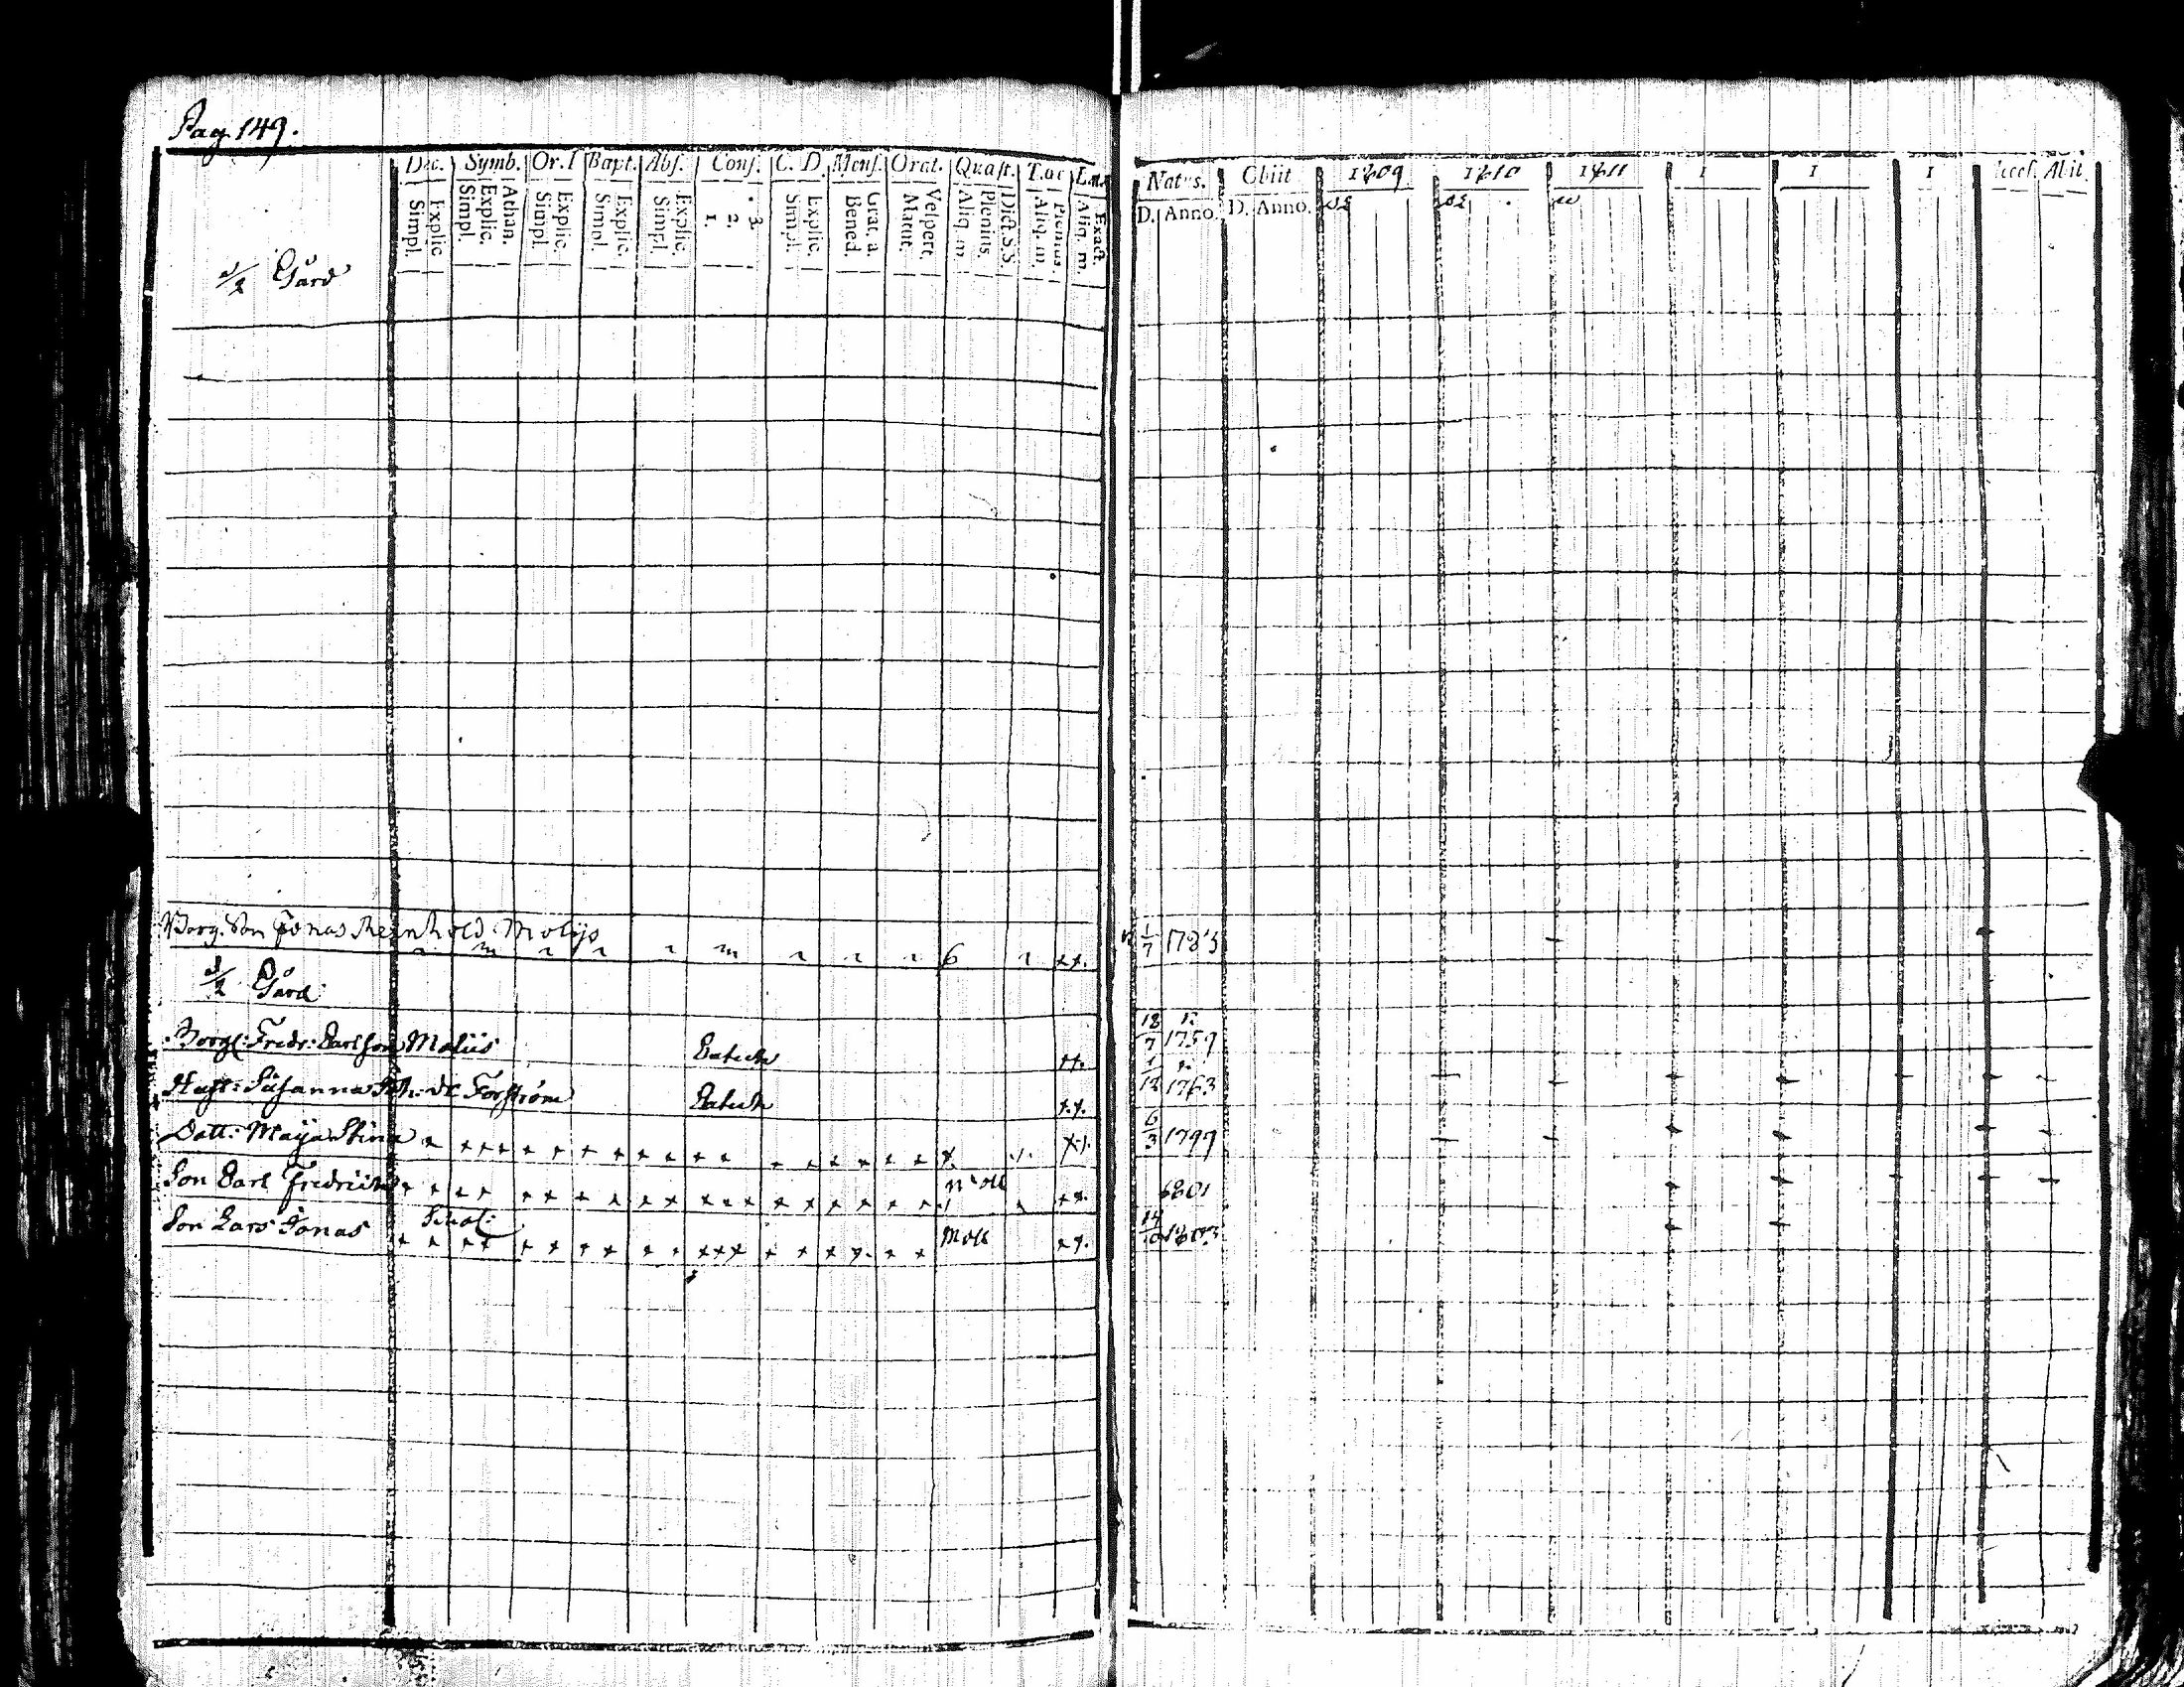 Pag. 149.
Dec. Symb. Or. D Bapt. Abs. Conf. C. D. Mens. Orat. Quæst. T. oe L.
Explic. Simpl. Athan. Explic. Simpl. Explic. Simpl. Explic. Simpl. Explic. Simpl. 3. 2. 1. Explic. Simpl. Grat. a. Bened. Vespert. Matut. Dict. S.S. Plenius. Aliq. m. Plenius. Aliq. m. Exact. Aliq. m.
Natus. Obiit 1809 1810 1811 1 1 1 Access. Abit
D. Anno. D. Anno.
1/2 Gård
Borg. Son Jonas Reinhold Moliis 6 1/7 1783
1/2 Gård
Borg: Fredr: Carlson Moliis Catech 18/7 1759
Hust: Susanna Forström Catech 1/12 1763
Dott: Maija Stina 6/3 1797
Son Carl Fredrik 1801
Son Lars Jonas 14/10 1803